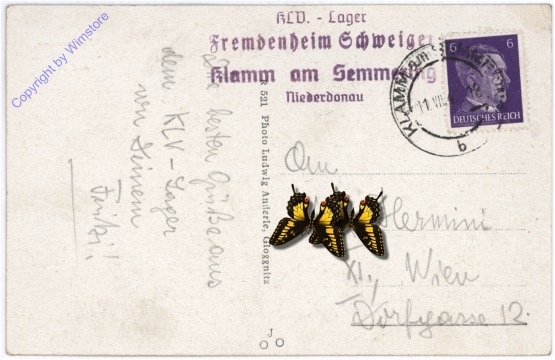 Copyright by Wimstore
KLV. - Lager
Fremdenheim Schweiger
Klamm am Semmering
Niederdonau
6 6
DEUTSCHES REICH
KLAMM
b
Die besten Grüße aus
dem KLV-Lager
von Deinem
Fritzi!
521 Photo Ludwig Anderle, Gloggnitz
An
Hermini
XI., Wien
Dorfgasse 12.
J